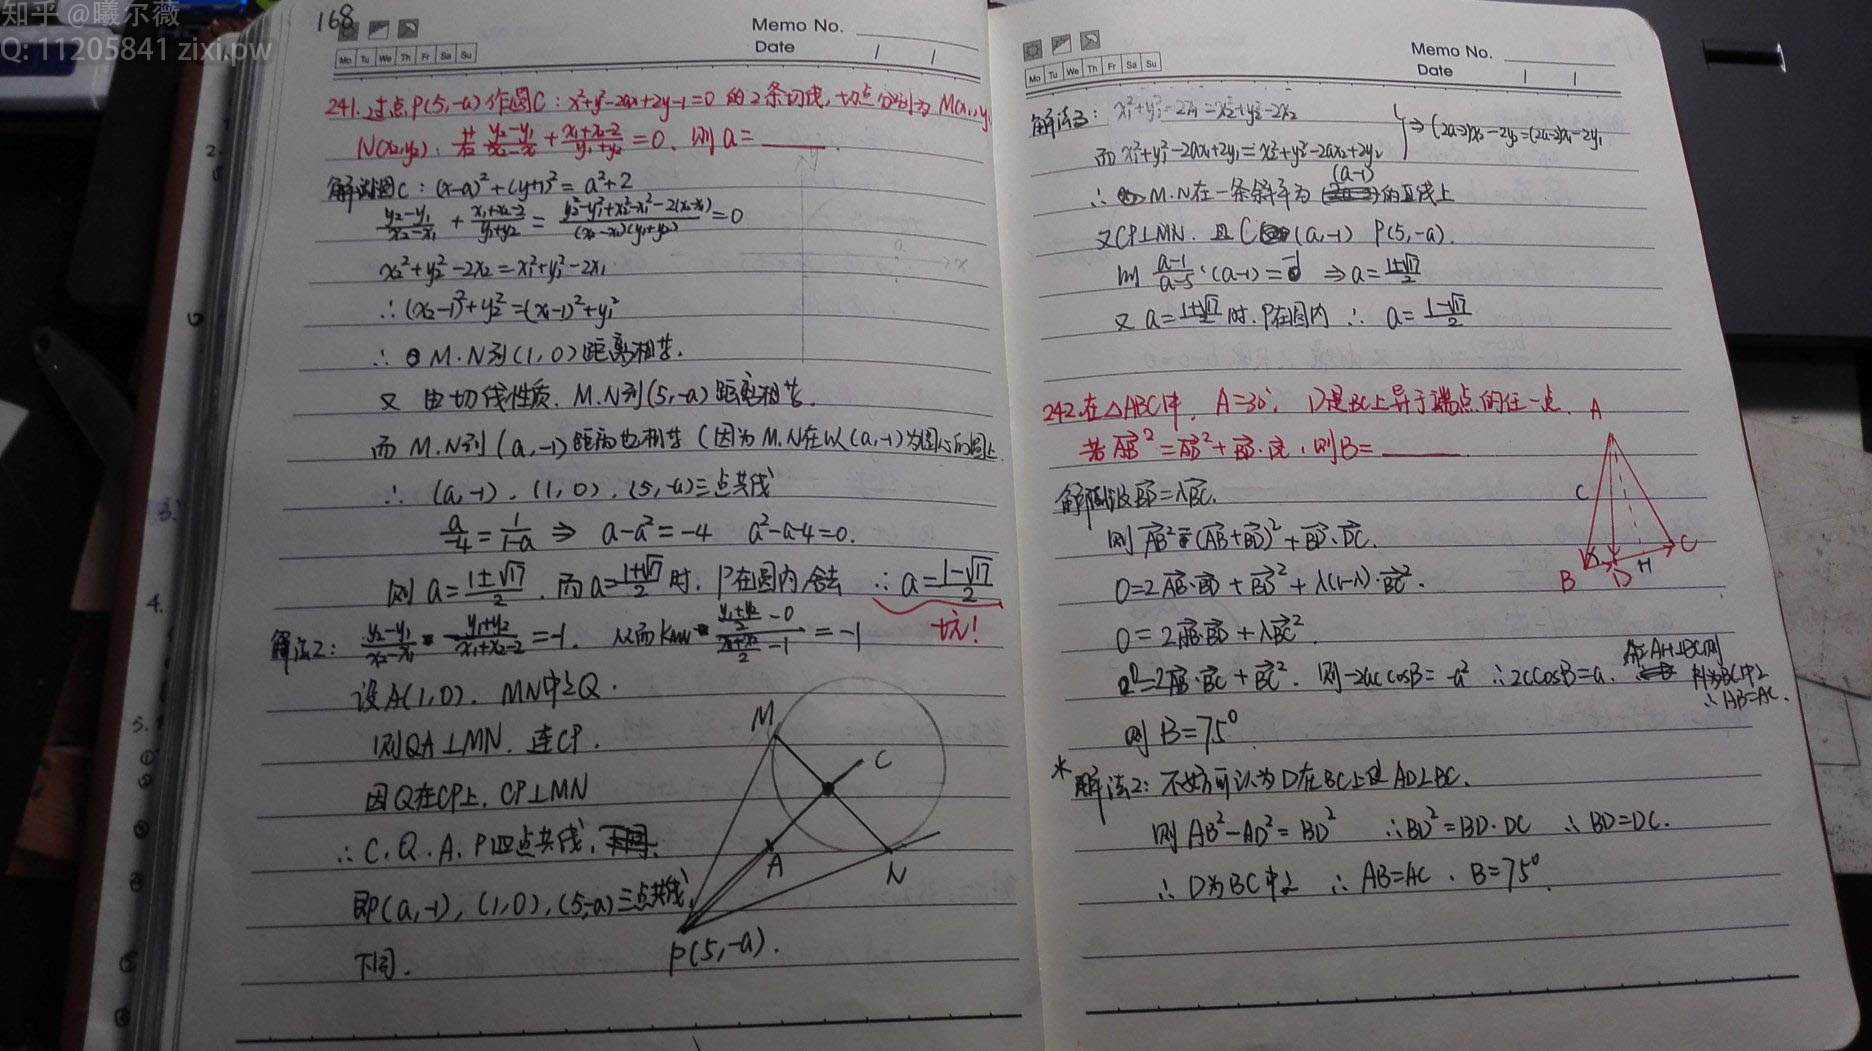 知乎 @曦尔薇
Q: 11205841 zixi.pw
168
Memo No.
Date / /
Mo Tu We Th Fr Sa Su
241. 过点P(5,-a)作圆C: x²+y²-2ax+2y-1=0 的2条切线, 切点分别为 M(x₁,y₁
N(x₂,y₂), 若 (y₂-y₁)/(x₂-x₁) + (x₁+x₂-2)/(y₁+y₂) = 0, 则 a= ____.
解法1: 圆C: (x-a)²+(y+1)² = a²+2
(y₂-y₁)/(x₂-x₁) + (x₁+x₂-2)/(y₁+y₂) = (y₂²-y₁²+x₂²-x₁²-2(x₂-x₁))/((x₂-x₁)(y₁+y₂)) = 0
x₂²+y₂²-2x₂=x₁²+y₁²-2x₁
∴ (x₂-1)²+y₂²=(x₁-1)²+y₁²
∴ M.N到(1,0)距离相等.
又 由切线性质, M.N到(5,-a)距离相等.
而 M.N到(a,-1)距离也相等 (因为M.N在以(a,-1)为圆心的圆上
∴ (a,-1), (1,0), (5,-a)三点共线
a/-4 = 1/(1-a) ⇒ a-a²=-4 a²-a-4=0.
则 a=(1±√17)/2, 而a=(1+√17)/2 时, P在圆内 舍去 ∴ a=(1-√17)/2
坑!
解法2: (y₂-y₁)/(x₂-x₁) · (y₁+y₂)/(x₁+x₂-2) = -1. 从而 kMN · ((y₁+y₂)/2 - 0)/((x₁+x₂)/2 - 1) = -1
设A(1,0). MN中点Q.
则QA⊥MN. 连CP.
因Q在CP上, CP⊥MN
∴ C.Q.A.P四点共线,
即(a,-1), (1,0), (5,-a)三点共线,
下同.
M
C
A
N
P(5,-a).
Memo No.
Date / /
Mo Tu We Th Fr Sa Su
解法3: x₁²+y₁²-2x₁=x₂²+y₂²-2x₂
而 x₁²+y₁²-2ax₁+2y₁=x₂²+y₂²-2ax₂+2y₂
⇒ (2a-2)x₂-2y₂=(2a-2)x₁-2y₁
∴ M.N在一条斜率为 (a-1) 的直线上
又CP⊥MN. 且 C(a,-1) P(5,-a).
则 (a-1)/(a-5)·(a-1)=-1 ⇒ a=(1±√17)/2
又 a=(1+√17)/2 时, P在圆内 ∴ a=(1-√17)/2
242. 在△ABC中, A=30°, D是BC上异于端点的任一点,
若 AB²=AD²+BD·DC, 则B= ____.
A
C
B
D
H
C
解法1: 设BD=λBC.
则 AB²=(AB+BD)²+BD·DC.
0=2AB·BD+BD²+λ(1-λ)·BC².
0=2AB·BD+λBC².
0=2AB·BC+BC². 则-2accosB=-a² ∴ 2ccosB=a.
作AH⊥BC则
H为BC中点
∴ AB=AC.
则 B=75°
* 解法2: 不妨可认为D在BC上使AD⊥BC.
则 AB²-AD²=BD² ∴ BD²=BD·DC ∴ BD=DC.
∴ D为BC中点 ∴ AB=AC, B=75°.